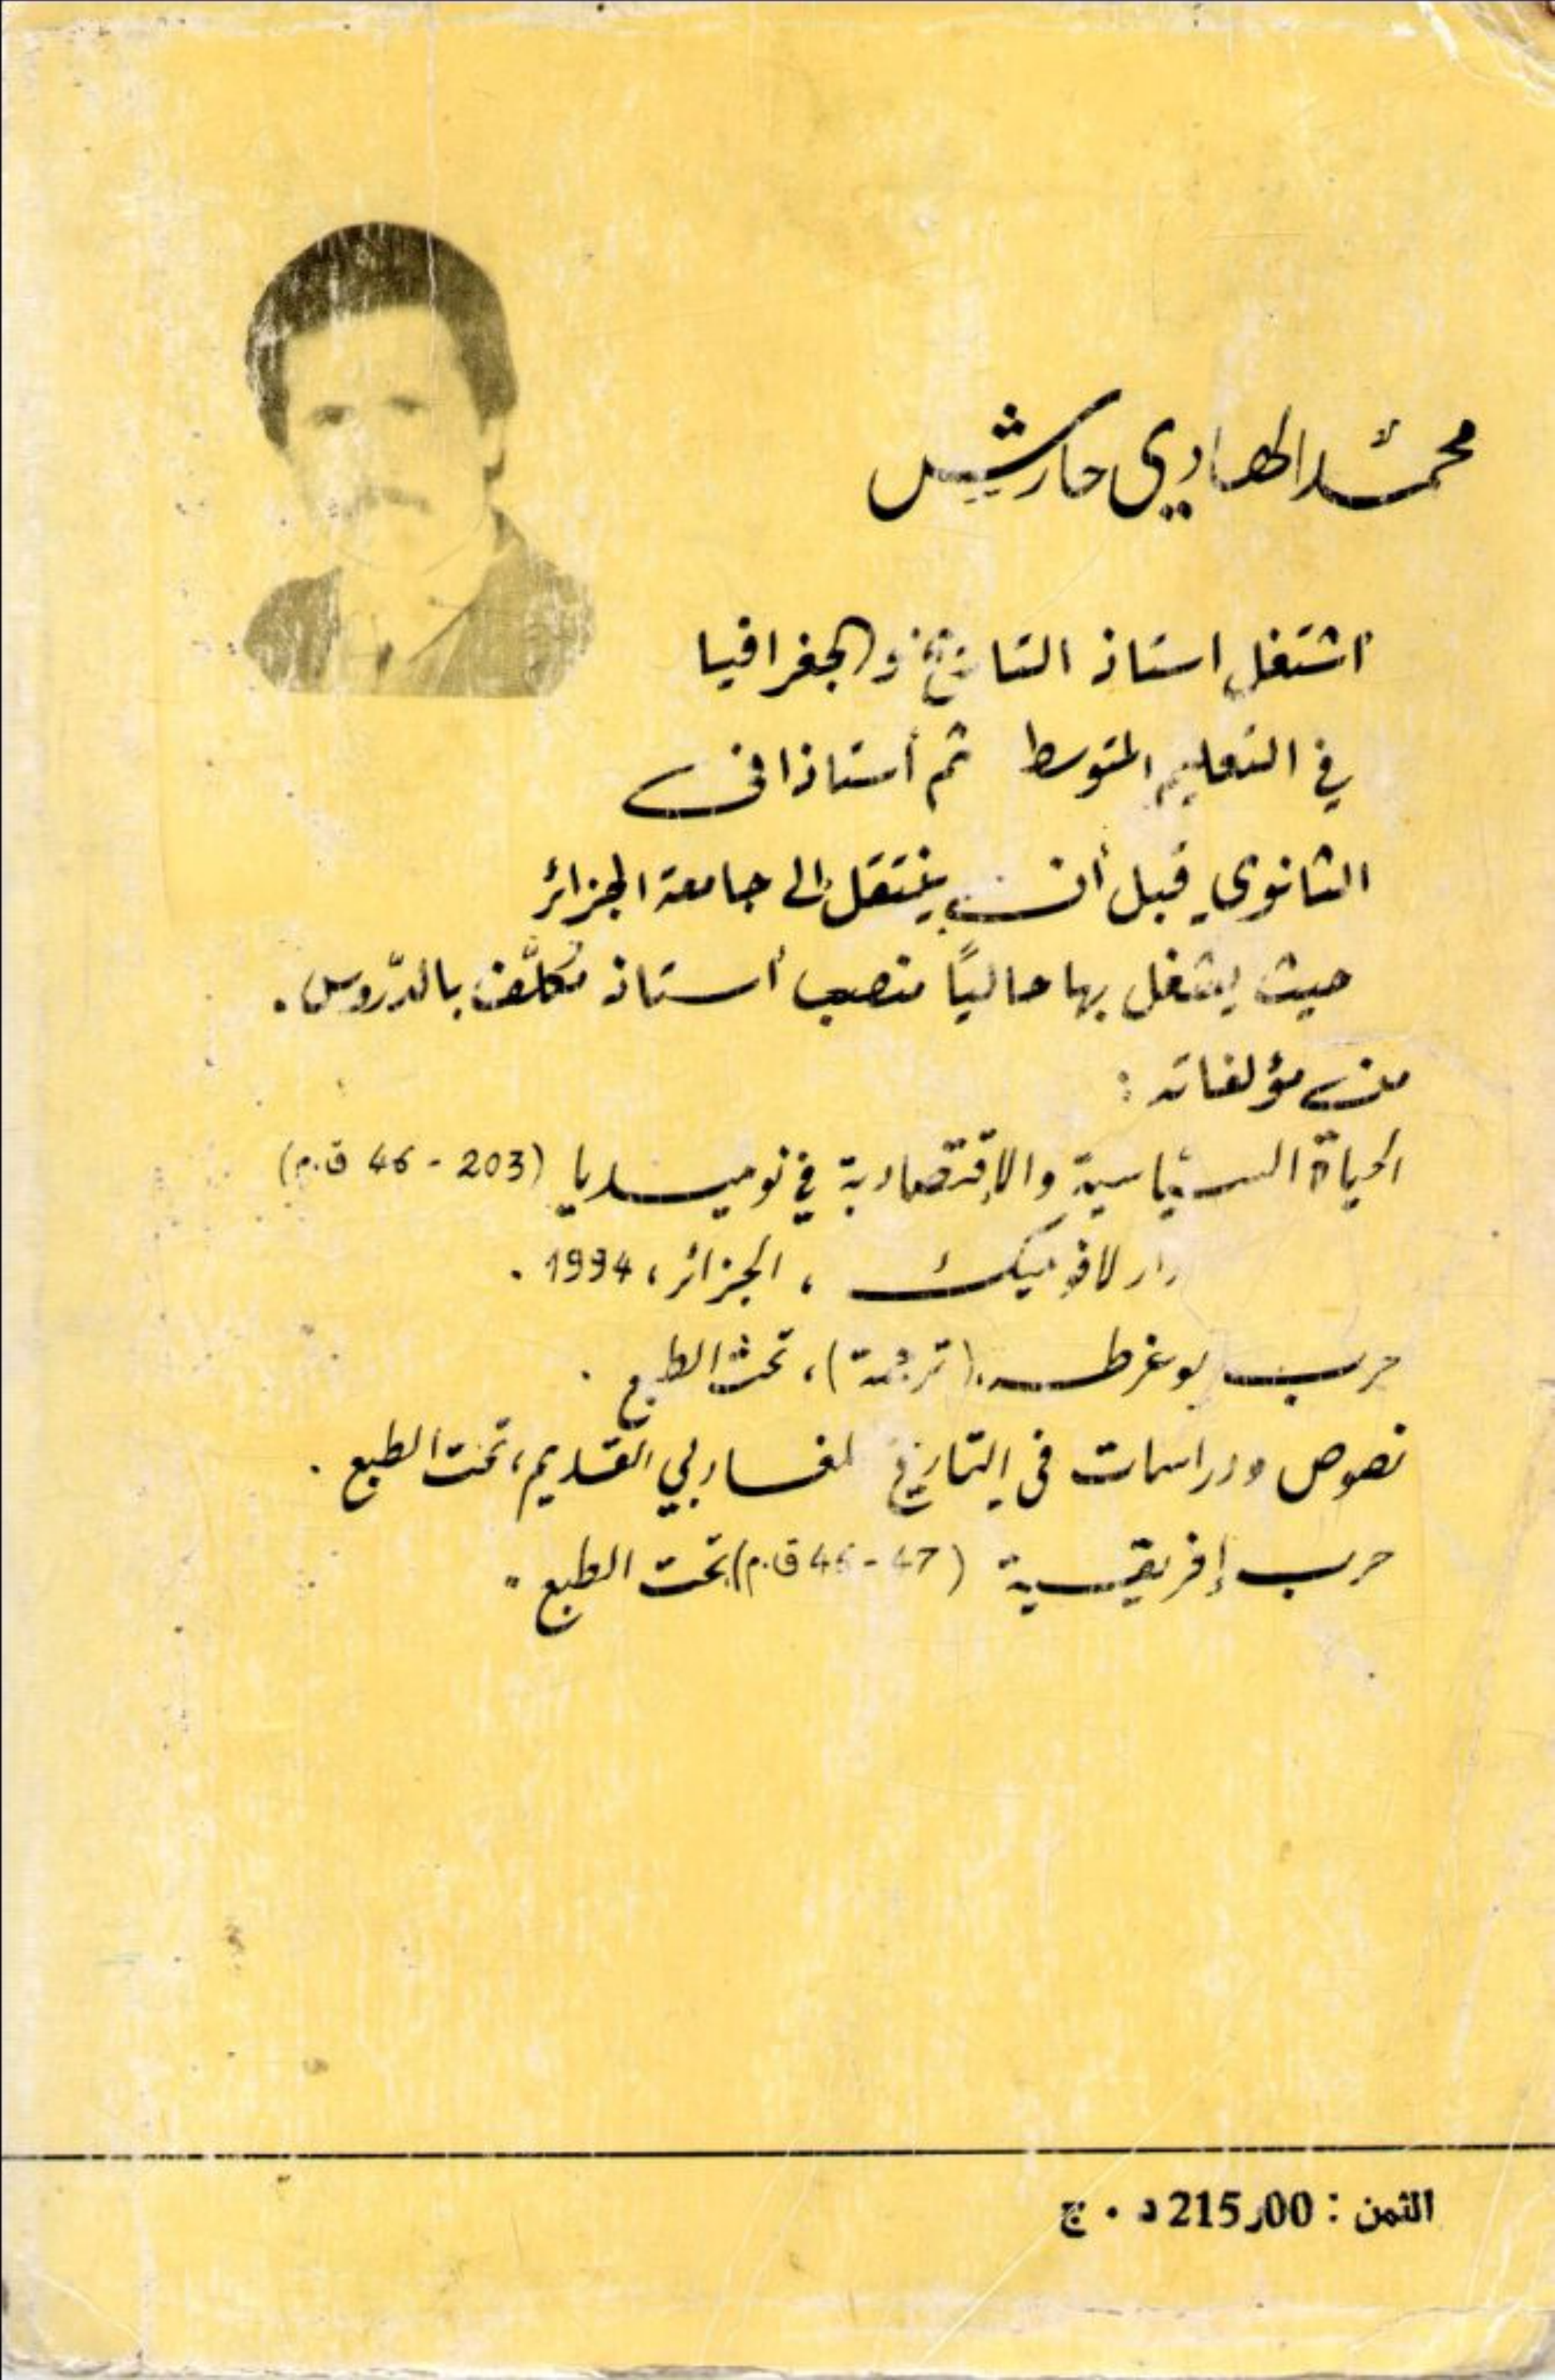 محمّد الهادي حارش
اشتغل استاذ التاريخ والجغرافيا
في التعليم المتوسط ثم أستاذا في
الثانوي قبل أن ينتقل إلى جامعة الجزائر
حيث يشغل بها حاليًا منصب أستاذ مُكلَّف بالدّروس.
من مؤلفاته :
الحياة السياسية والإقتصادية في نوميديا (203 - 46 ق.م)
دار لافوميك ، الجزائر، 1994 .
حرب يوغرطه (ترجمة)، تحت الطبع .
نصوص ودراسات في التاريخ لمغاربي القديم، تحت الطبع .
حرب إفريقية (47 - 46 ق.م) تحت الطبع .
الثمن : 215,00 د . ج